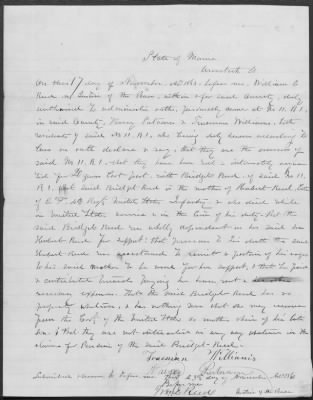 State of Maine
Aroostook Co
On this 17 day of November A.D. 186 before me, William C
Reed a Justice of the Peace, within & for said County, duly
authorized to administer oaths, personally came at No 11. R 1.
in said County, Putnam & Freeman Williams, both
residents of said No 11. R 1. who being duly sworn according to
law on oath declare & say, that they are the assessors of
said No 11. R 1. that they have been well & intimately acquain
ted for years last past with Bridget Reed, of said No 11.
R 1. that said Bridget Reed is the mother of Herbert Reed, late
of Co Regt United States Infantry & who died while
in United States service & in the line of his duty. that the
said Bridget Reed was wholly dependent on her said Son
Herbert Reed for support: that previous to his death the said
Herbert Reed was accustomed to remit a portion of his wages
to his said mother to be used for her support, & that he paid
& contributed towards paying his house rent &
necessary expenses. that the said Bridget Reed has no
property whatever, & has nothing now that she may receive
from the Govt of the United States as mother heir of his late
Son. & that they are not interested in any way whatever in the
claim for Pension of the said Bridget Reed.
Freeman Williams
Putnam
Subscribed & sworn to before me this 23d day of November A.D. 186
Before me
Wm C Reed Justice of the Peace